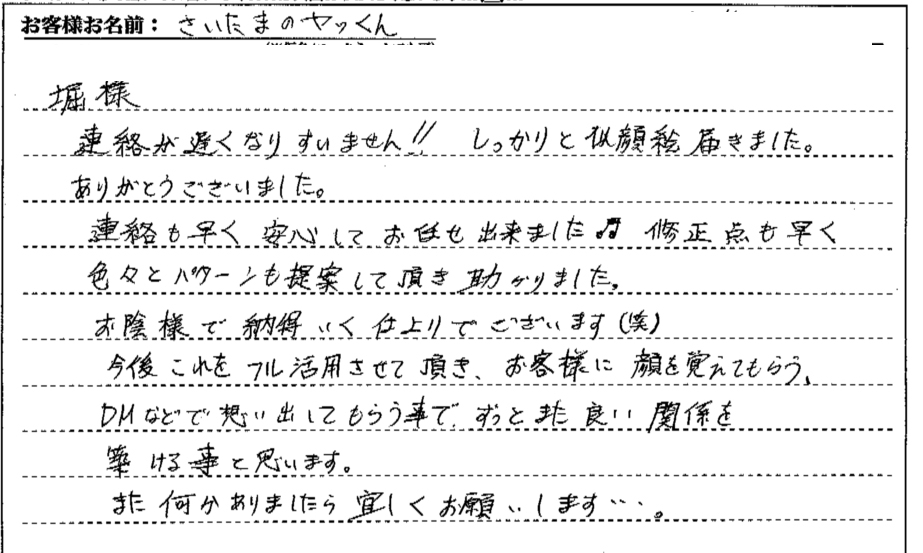 お客様お名前：さいたまのヤックん
堀様
連絡が遅くなりすいません!! しっかりと似顔絵届きました。
ありがとうございました。
連絡も早く安心してお任せ出来ました♬ 修正点も早く
色々とパターンも提案して頂き助かりました。
お陰様で納得いく仕上りでございます(笑)
今後これをフル活用させて頂き、お客様に顔を覚えてもらう、
DMなどで想い出してもらう事で、ずっとまた良い関係を
築ける事と思います。
また何かありましたら宜しくお願いします…。